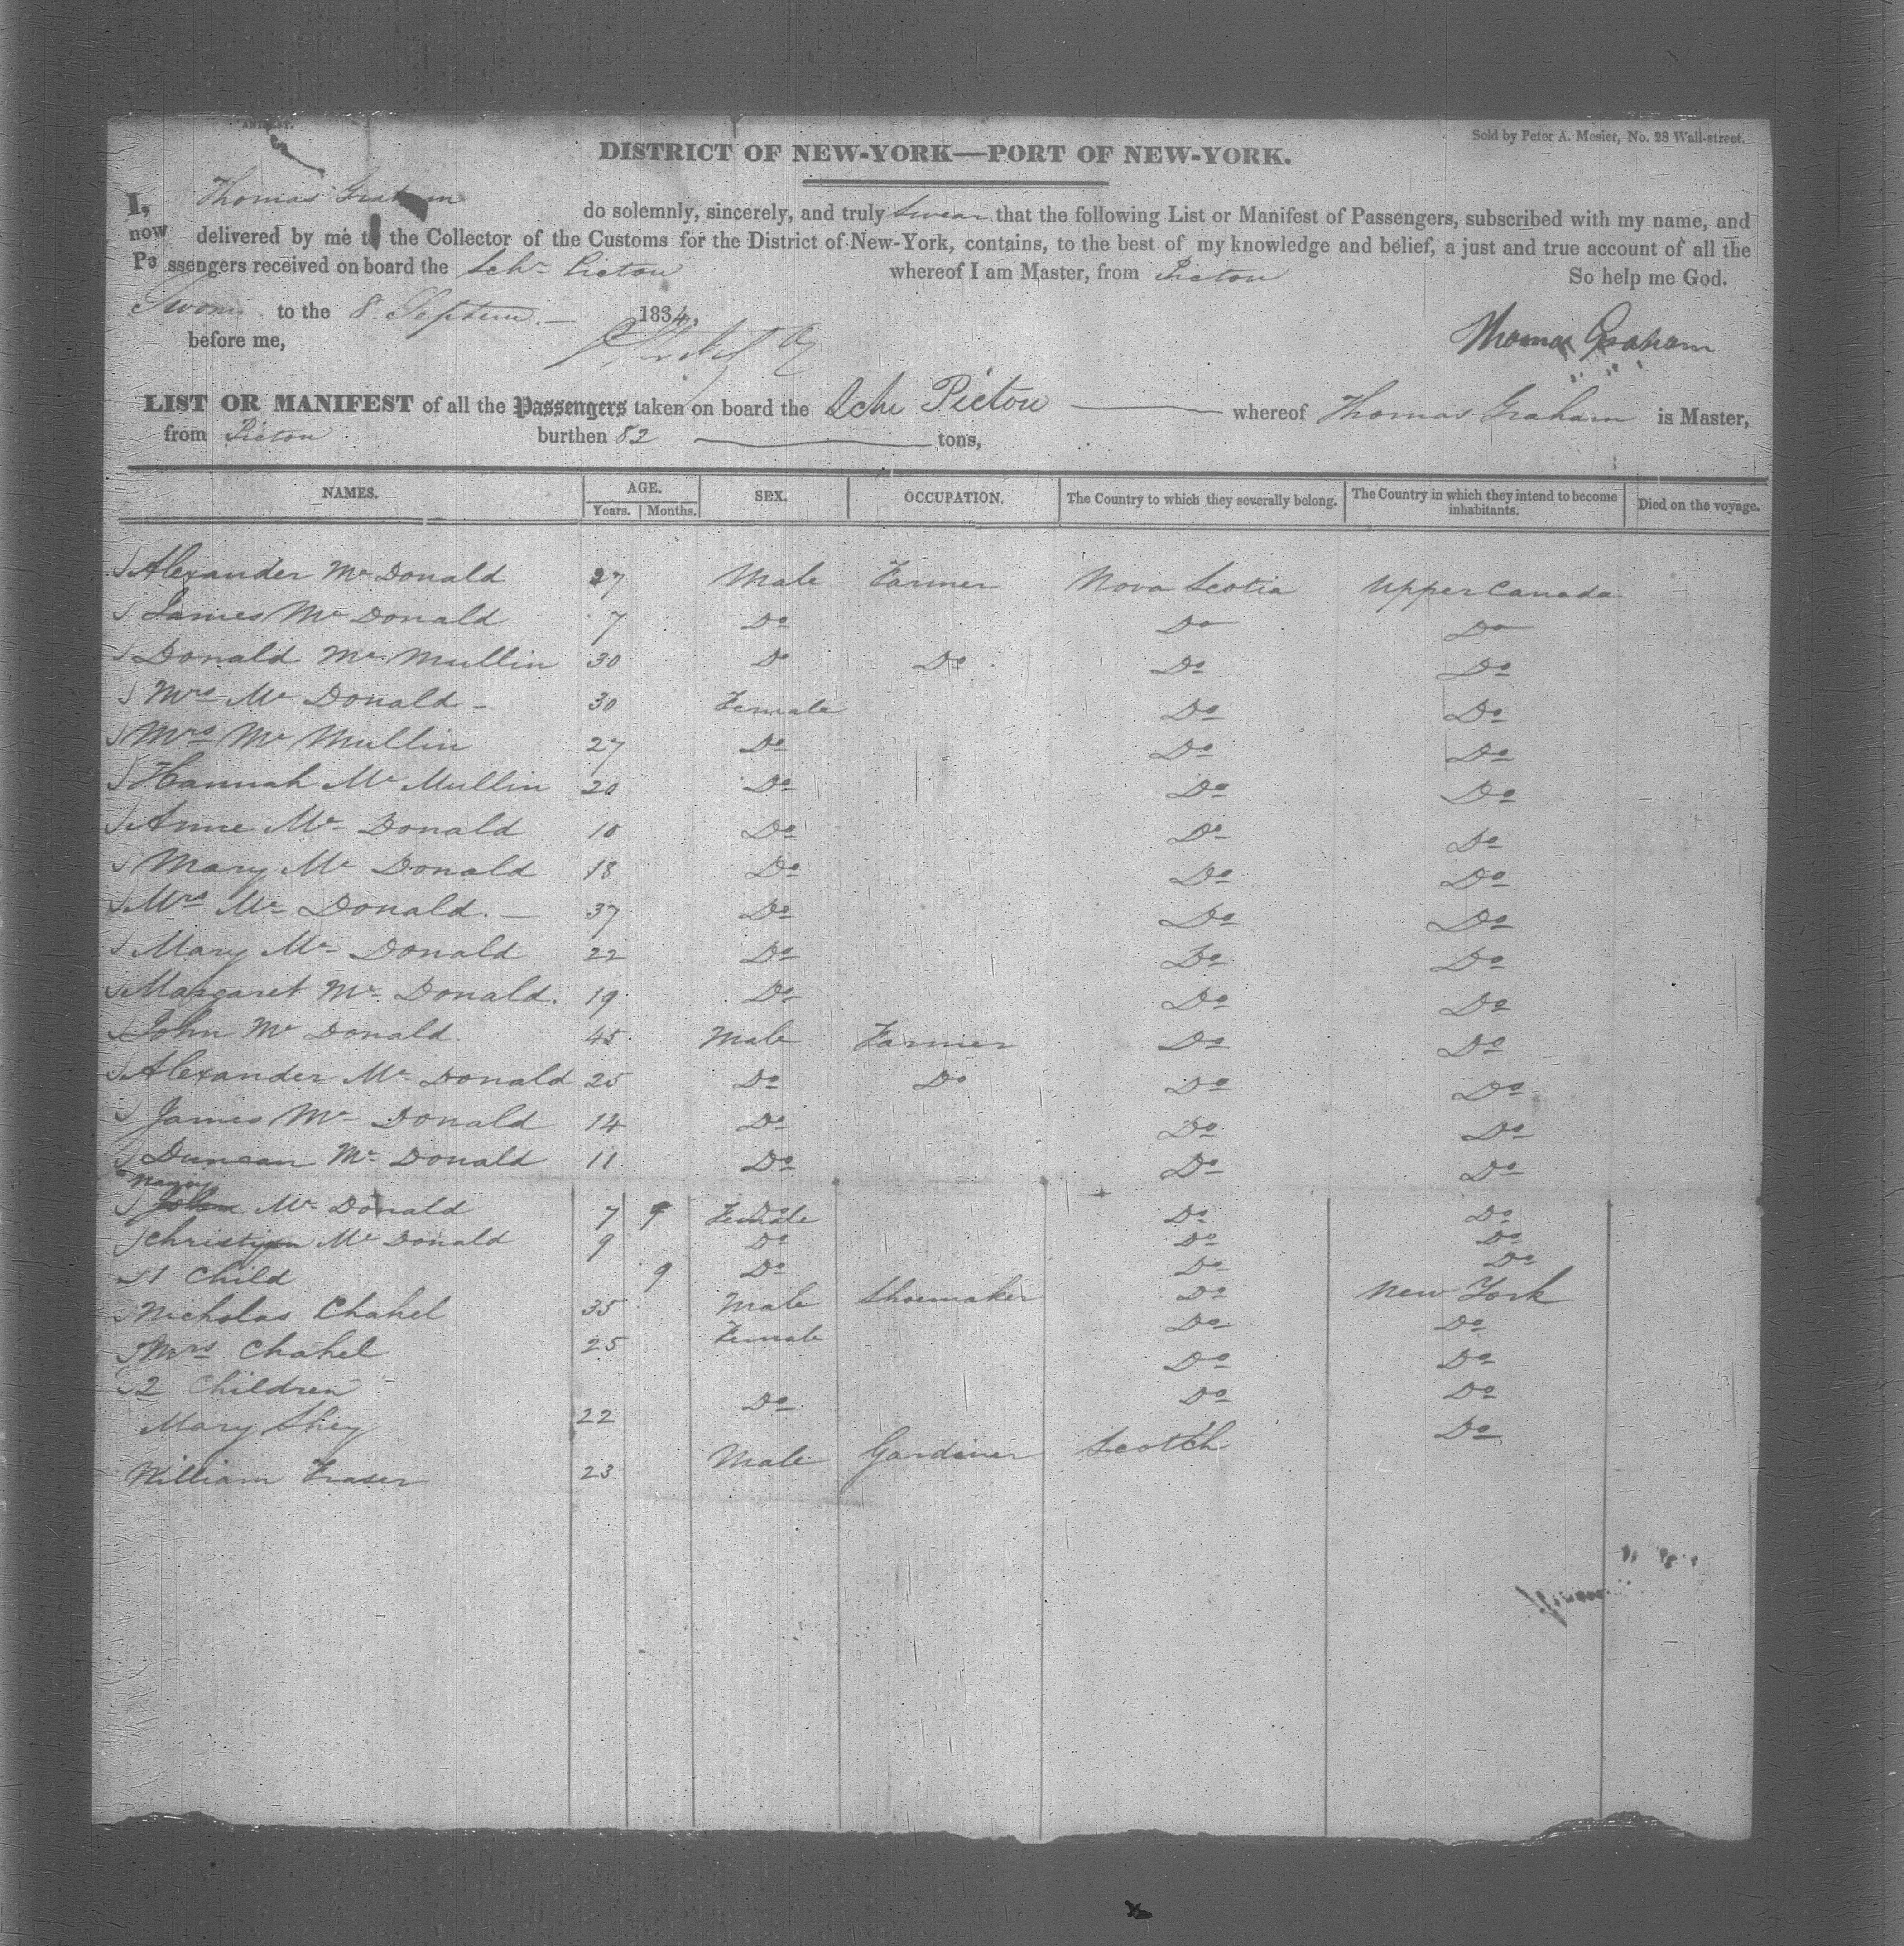 Sold by Peter A. Mesier, No. 28 Wall-street.
DISTRICT OF NEW-YORK—PORT OF NEW-YORK.
I, Thomas Graham do solemnly, sincerely, and truly swear that the following List or Manifest of Passengers, subscribed with my name, and
now delivered by me to the Collector of the Customs for the District of New-York, contains, to the best of my knowledge and belief, a just and true account of all the
Passengers received on board the Schr Picton whereof I am Master, from Picton So help me God.
Sworn to the 8 Septem 1834,
before me,
Thomas Graham
LIST OR MANIFEST of all the Passengers taken on board the Schr Picton whereof Thomas Graham is Master,
from Picton burthen 82 tons,
NAMES. AGE. SEX. OCCUPATION. The Country to which they severally belong. The Country in which they intend to become inhabitants. Died on the voyage.
Years. Months.
Alexander Mc Donald 27 Male Farmer Nova Scotia Upper Canada
James Mc Donald 7 Do Do Do
Donald Mc Mullin 30 Do Do Do Do
Mrs Mc Donald 30 Female Do Do
Mrs Mc Mullin 27 Do Do Do
Hannah Mc Mullin 20 Do Do Do
Anne Mc Donald 10 Do Do Do
Mary Mc Donald 18 Do Do Do
Mrs Mc Donald. 37 Do Do Do
Mary Mc Donald 22 Do Do Do
Margaret Mc Donald. 19 Do Do Do
John Mc Donald. 45 Male Farmer Do Do
Alexander Mc Donald 25 Do Do Do Do
James Mc Donald 14 Do Do Do
Duncan Mc Donald 11 Do Do Do
Nancy
John Mc Donald 7 9 Female Do Do
Christian Mc Donald 9 Do Do Do
1 Child 9 Do Do Do
Nicholas Chahel 35 Male Shoemaker Do New York
Mrs Chahel 25 Female Do Do
2 Children Do Do
Mary Shey 22 Do Do Do
William Fraser 23 Male Gardiner Scotch Do